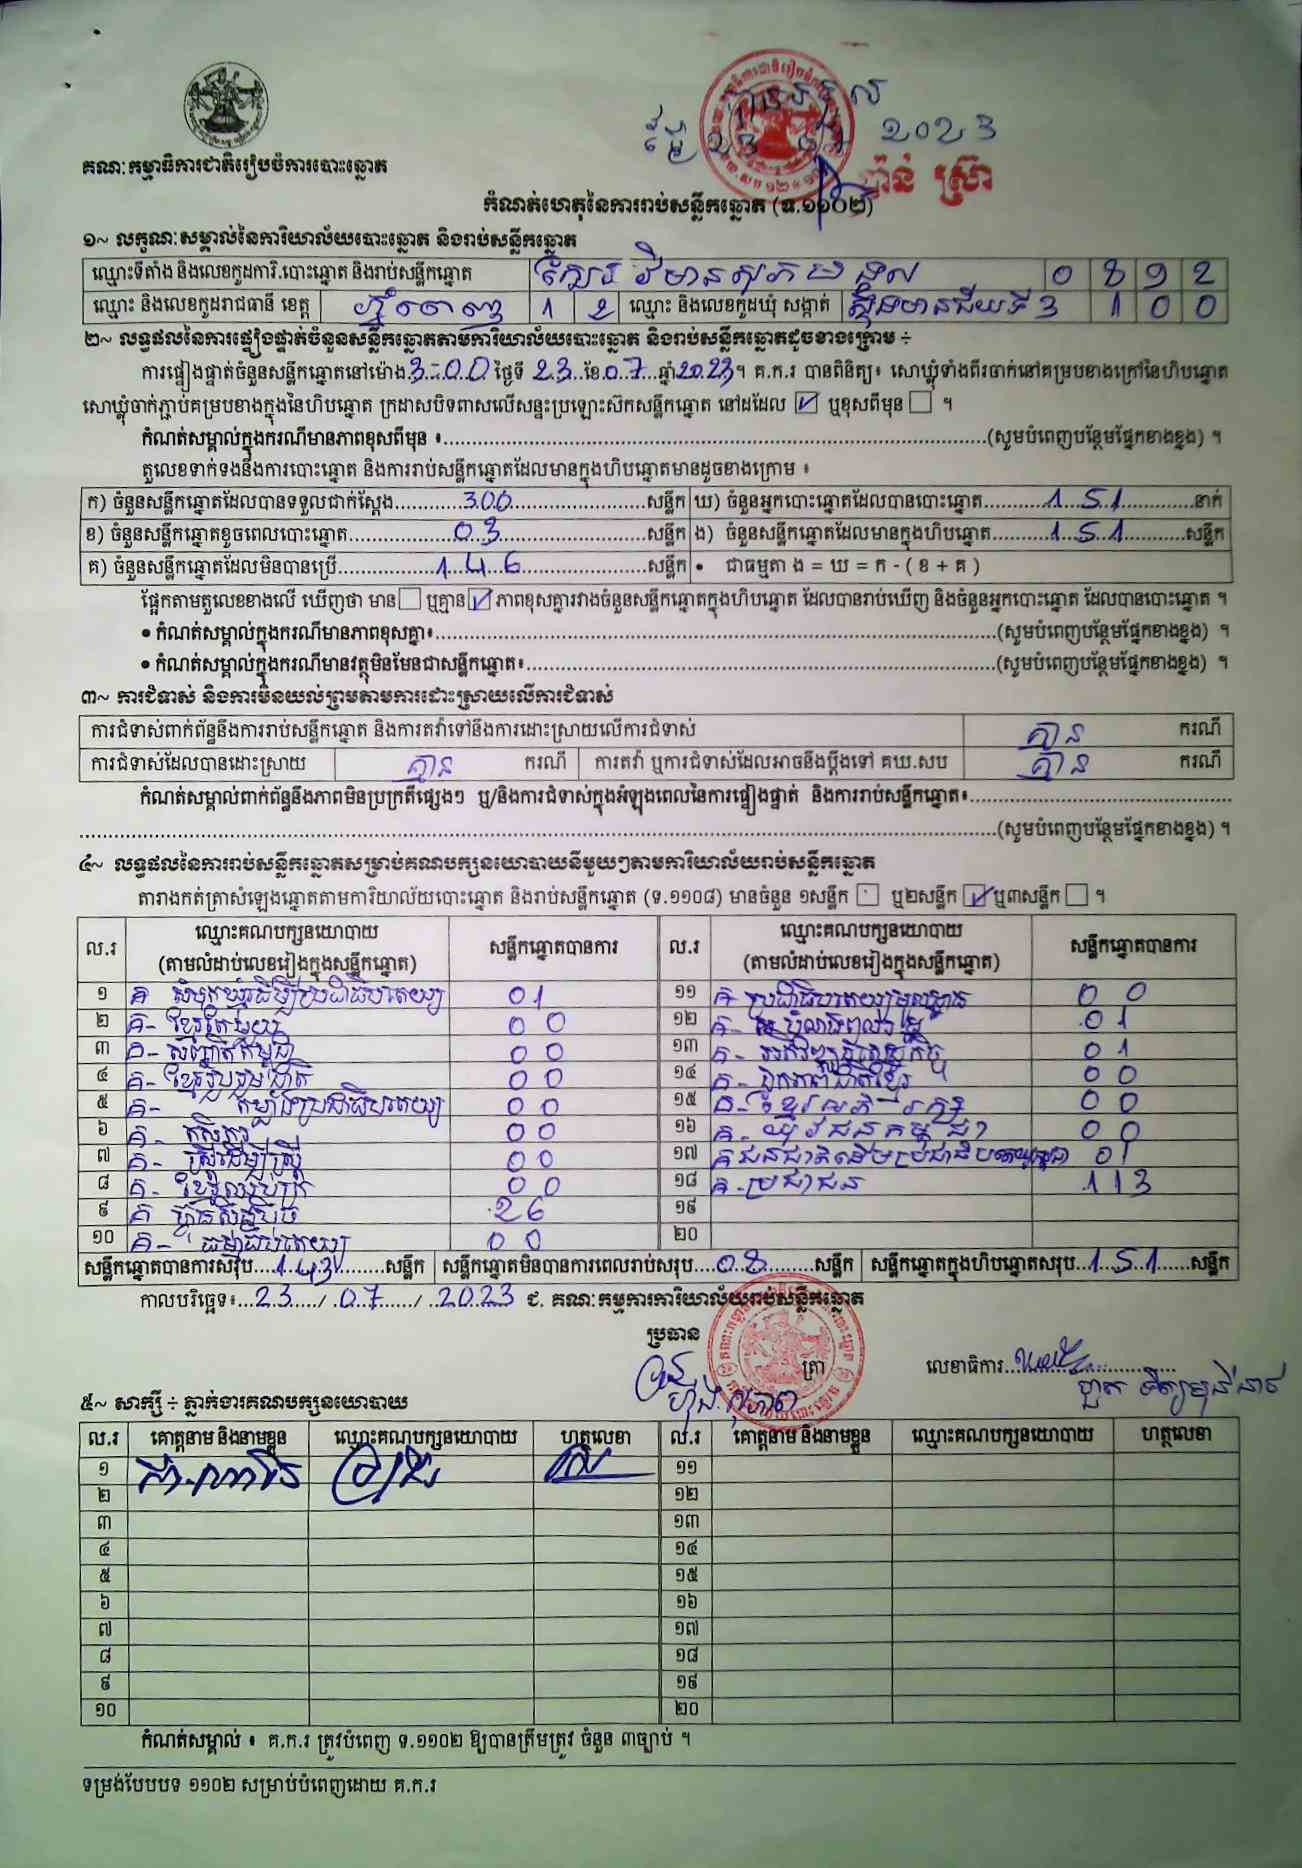 បានទទួល
ថ្ងៃ 23 07 2023
ប៉ាន់ ស្រ៊ា
គណៈកម្មាធិការជាតិរៀបចំការបោះឆ្នោត
កំណត់ហេតុនៃការរាប់សន្លឹកឆ្នោត (ទ.១១០២)
១~ លក្ខណៈសម្គាល់នៃការិយាល័យបោះឆ្នោត និងរាប់សន្លឹកឆ្នោត
ឈ្មោះទីតាំង និងលេខកូដការិ.បោះឆ្នោត និងរាប់សន្លឹកឆ្នោត 0892
ឈ្មោះ និងលេខកូដរាជធានី ខេត្ត ភ្នំពេញ 12 ឈ្មោះ និងលេខកូដឃុំ សង្កាត់ ស្ទឹងមានជ័យទី3 100
២~ លទ្ធផលនៃការផ្ទៀងផ្ទាត់ចំនួនសន្លឹកឆ្នោតតាមការិយាល័យបោះឆ្នោត និងរាប់សន្លឹកឆ្នោតដូចខាងក្រោម ÷
ការផ្ទៀងផ្ទាត់ចំនួនសន្លឹកឆ្នោតនៅម៉ោង 3-00 ថ្ងៃទី 23 ខែ 07 ឆ្នាំ 2023។ គ.ក.រ បានពិនិត្យ៖ សោឃ្លុំទាំងពីរចាក់នៅគម្របខាងក្រៅនៃហិបឆ្នោត
សោឃ្លុំចាក់ភ្ជាប់គម្របខាងក្នុងនៃហិបឆ្នោត ក្រដាសបិទពាសលើសន្ទះប្រឡោះស៊កសន្លឹកឆ្នោត នៅដដែល ☑ ឬខុសពីមុន ☐ ។
កំណត់សម្គាល់ក្នុងករណីមានភាពខុសពីមុន ៖ (សូមបំពេញបន្ថែមផ្នែកខាងខ្នង) ។
តួលេខទាក់ទងនឹងការបោះឆ្នោត និងការរាប់សន្លឹកឆ្នោតដែលមានក្នុងហិបឆ្នោតមានដូចខាងក្រោម ៖
ក) ចំនួនសន្លឹកឆ្នោតដែលបានទទួលជាក់ស្តែង 300 សន្លឹក ឃ) ចំនួនអ្នកបោះឆ្នោតដែលបានបោះឆ្នោត 151 នាក់
ខ) ចំនួនសន្លឹកឆ្នោតខូចពេលបោះឆ្នោត 03 សន្លឹក ង) ចំនួនសន្លឹកឆ្នោតដែលមានក្នុងហិបឆ្នោត 151 សន្លឹក
គ) ចំនួនសន្លឹកឆ្នោតដែលមិនបានប្រើ 146 សន្លឹក • ជាធម្មតា ង = ឃ = ក - ( ខ + គ )
ផ្អែកតាមតួលេខខាងលើ ឃើញថា មាន ☐ ឬគ្មាន ☑ ភាពខុសគ្នារវាងចំនួនសន្លឹកឆ្នោតក្នុងហិបឆ្នោត ដែលបានរាប់ឃើញ និងចំនួនអ្នកបោះឆ្នោត ដែលបានបោះឆ្នោត ។
• កំណត់សម្គាល់ក្នុងករណីមានភាពខុសគ្នា៖ (សូមបំពេញបន្ថែមផ្នែកខាងខ្នង) ។
• កំណត់សម្គាល់ក្នុងករណីមានវត្ថុមិនមែនជាសន្លឹកឆ្នោត៖ (សូមបំពេញបន្ថែមផ្នែកខាងខ្នង) ។
៣~ ការជំទាស់ និងការមិនយល់ព្រមតាមការដោះស្រាយលើការជំទាស់
ការជំទាស់ពាក់ព័ន្ធនឹងការរាប់សន្លឹកឆ្នោត និងការតវ៉ាទៅនឹងការដោះស្រាយលើការជំទាស់ គ្មាន ករណី
ការជំទាស់ដែលបានដោះស្រាយ គ្មាន ករណី ការតវ៉ា ឬការជំទាស់ដែលអាចនឹងប្តឹងទៅ គឃ.សប គ្មាន ករណី
កំណត់សម្គាល់ពាក់ព័ន្ធនឹងភាពមិនប្រក្រតីផ្សេងៗ ឬ/និងការជំទាស់ក្នុងអំឡុងពេលនៃការផ្ទៀងផ្ទាត់ និងការរាប់សន្លឹកឆ្នោត៖
(សូមបំពេញបន្ថែមផ្នែកខាងខ្នង) ។
៤~ លទ្ធផលនៃការរាប់សន្លឹកឆ្នោតសម្រាប់គណបក្សនយោបាយនីមួយៗតាមការិយាល័យរាប់សន្លឹកឆ្នោត
តារាងកត់ត្រាសំឡេងឆ្នោតតាមការិយាល័យបោះឆ្នោត និងរាប់សន្លឹកឆ្នោត (ទ.១១០៨) មានចំនួន ១សន្លឹក ☐ ឬ២សន្លឹក ☑ ឬ៣សន្លឹក ☐ ។
ល.រ ឈ្មោះគណបក្សនយោបាយ សន្លឹកឆ្នោតបានការ ល.រ ឈ្មោះគណបក្សនយោបាយ សន្លឹកឆ្នោតបានការ
(តាមលំដាប់លេខរៀងក្នុងសន្លឹកឆ្នោត) (តាមលំដាប់លេខរៀងក្នុងសន្លឹកឆ្នោត)
១ គ សំបុកឃ្មុំដើម្បីប្រជាធិបតេយ្យ 01 ១១ គ-ប្រជាធិបតេយ្យមូលដ្ឋាន 00
២ គ- ខ្មែរតែមួយ 00 ១២ គ- 01
៣ គ- សញ្ជាតិកម្ពុជា 00 ១៣ គ- 01
៤ គ- ខ្មែររួបរួមជាតិ 00 ១៤ គ- ឯកភាពជាតិខ្មែរ 00
៥ គ- កម្លាំងប្រជាធិបតេយ្យ 00 ១៥ គ- ខ្មែរអភិរក្ស 00
៦ គ- កសិករ 00 ១៦ គ- យុវជនកម្ពុជា 00
៧ គ- ស្ត្រីដើម្បីស្ត្រី 00 ១៧ គ 01
៨ គ- ខ្មែរឈប់ក្រ 00 ១៨ គ-ប្រជាជន 113
៩ គ ហ្វ៊ុនស៊ិនប៉ិច 26 ១៩
១០ គ- ធម្មាធិបតេយ្យ 00 ២០
សន្លឹកឆ្នោតបានការសរុប 143 សន្លឹក សន្លឹកឆ្នោតមិនបានការពេលរាប់សរុប 08 សន្លឹក សន្លឹកឆ្នោតក្នុងហិបឆ្នោតសរុប 151 សន្លឹក
កាលបរិច្ឆេទ៖ 23 / 07 / 2023 ជ. គណៈកម្មការការិយាល័យរាប់សន្លឹកឆ្នោត
ប្រធាន
ត្រា លេខាធិការ
៥~ សាក្សី ÷ ភ្នាក់ងារគណបក្សនយោបាយ
ល.រ គោត្តនាម និងនាមខ្លួន ឈ្មោះគណបក្សនយោបាយ ហត្ថលេខា ល.រ គោត្តនាម និងនាមខ្លួន ឈ្មោះគណបក្សនយោបាយ ហត្ថលេខា
១ ១១
២ ១២
៣ ១៣
៤ ១៤
៥ ១៥
៦ ១៦
៧ ១៧
៨ ១៨
៩ ១៩
១០ ២០
កំណត់សម្គាល់ ៖ គ.ក.រ ត្រូវបំពេញ ទ.១១០២ ឱ្យបានត្រឹមត្រូវ ចំនួន ៣ច្បាប់ ។
ទម្រង់បែបបទ ១១០២ សម្រាប់បំពេញដោយ គ.ក.រ